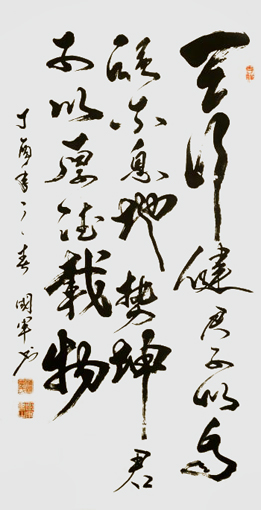 天行健君子以自
强不息地勢坤君
子以厚德載物
丁酉春國軍